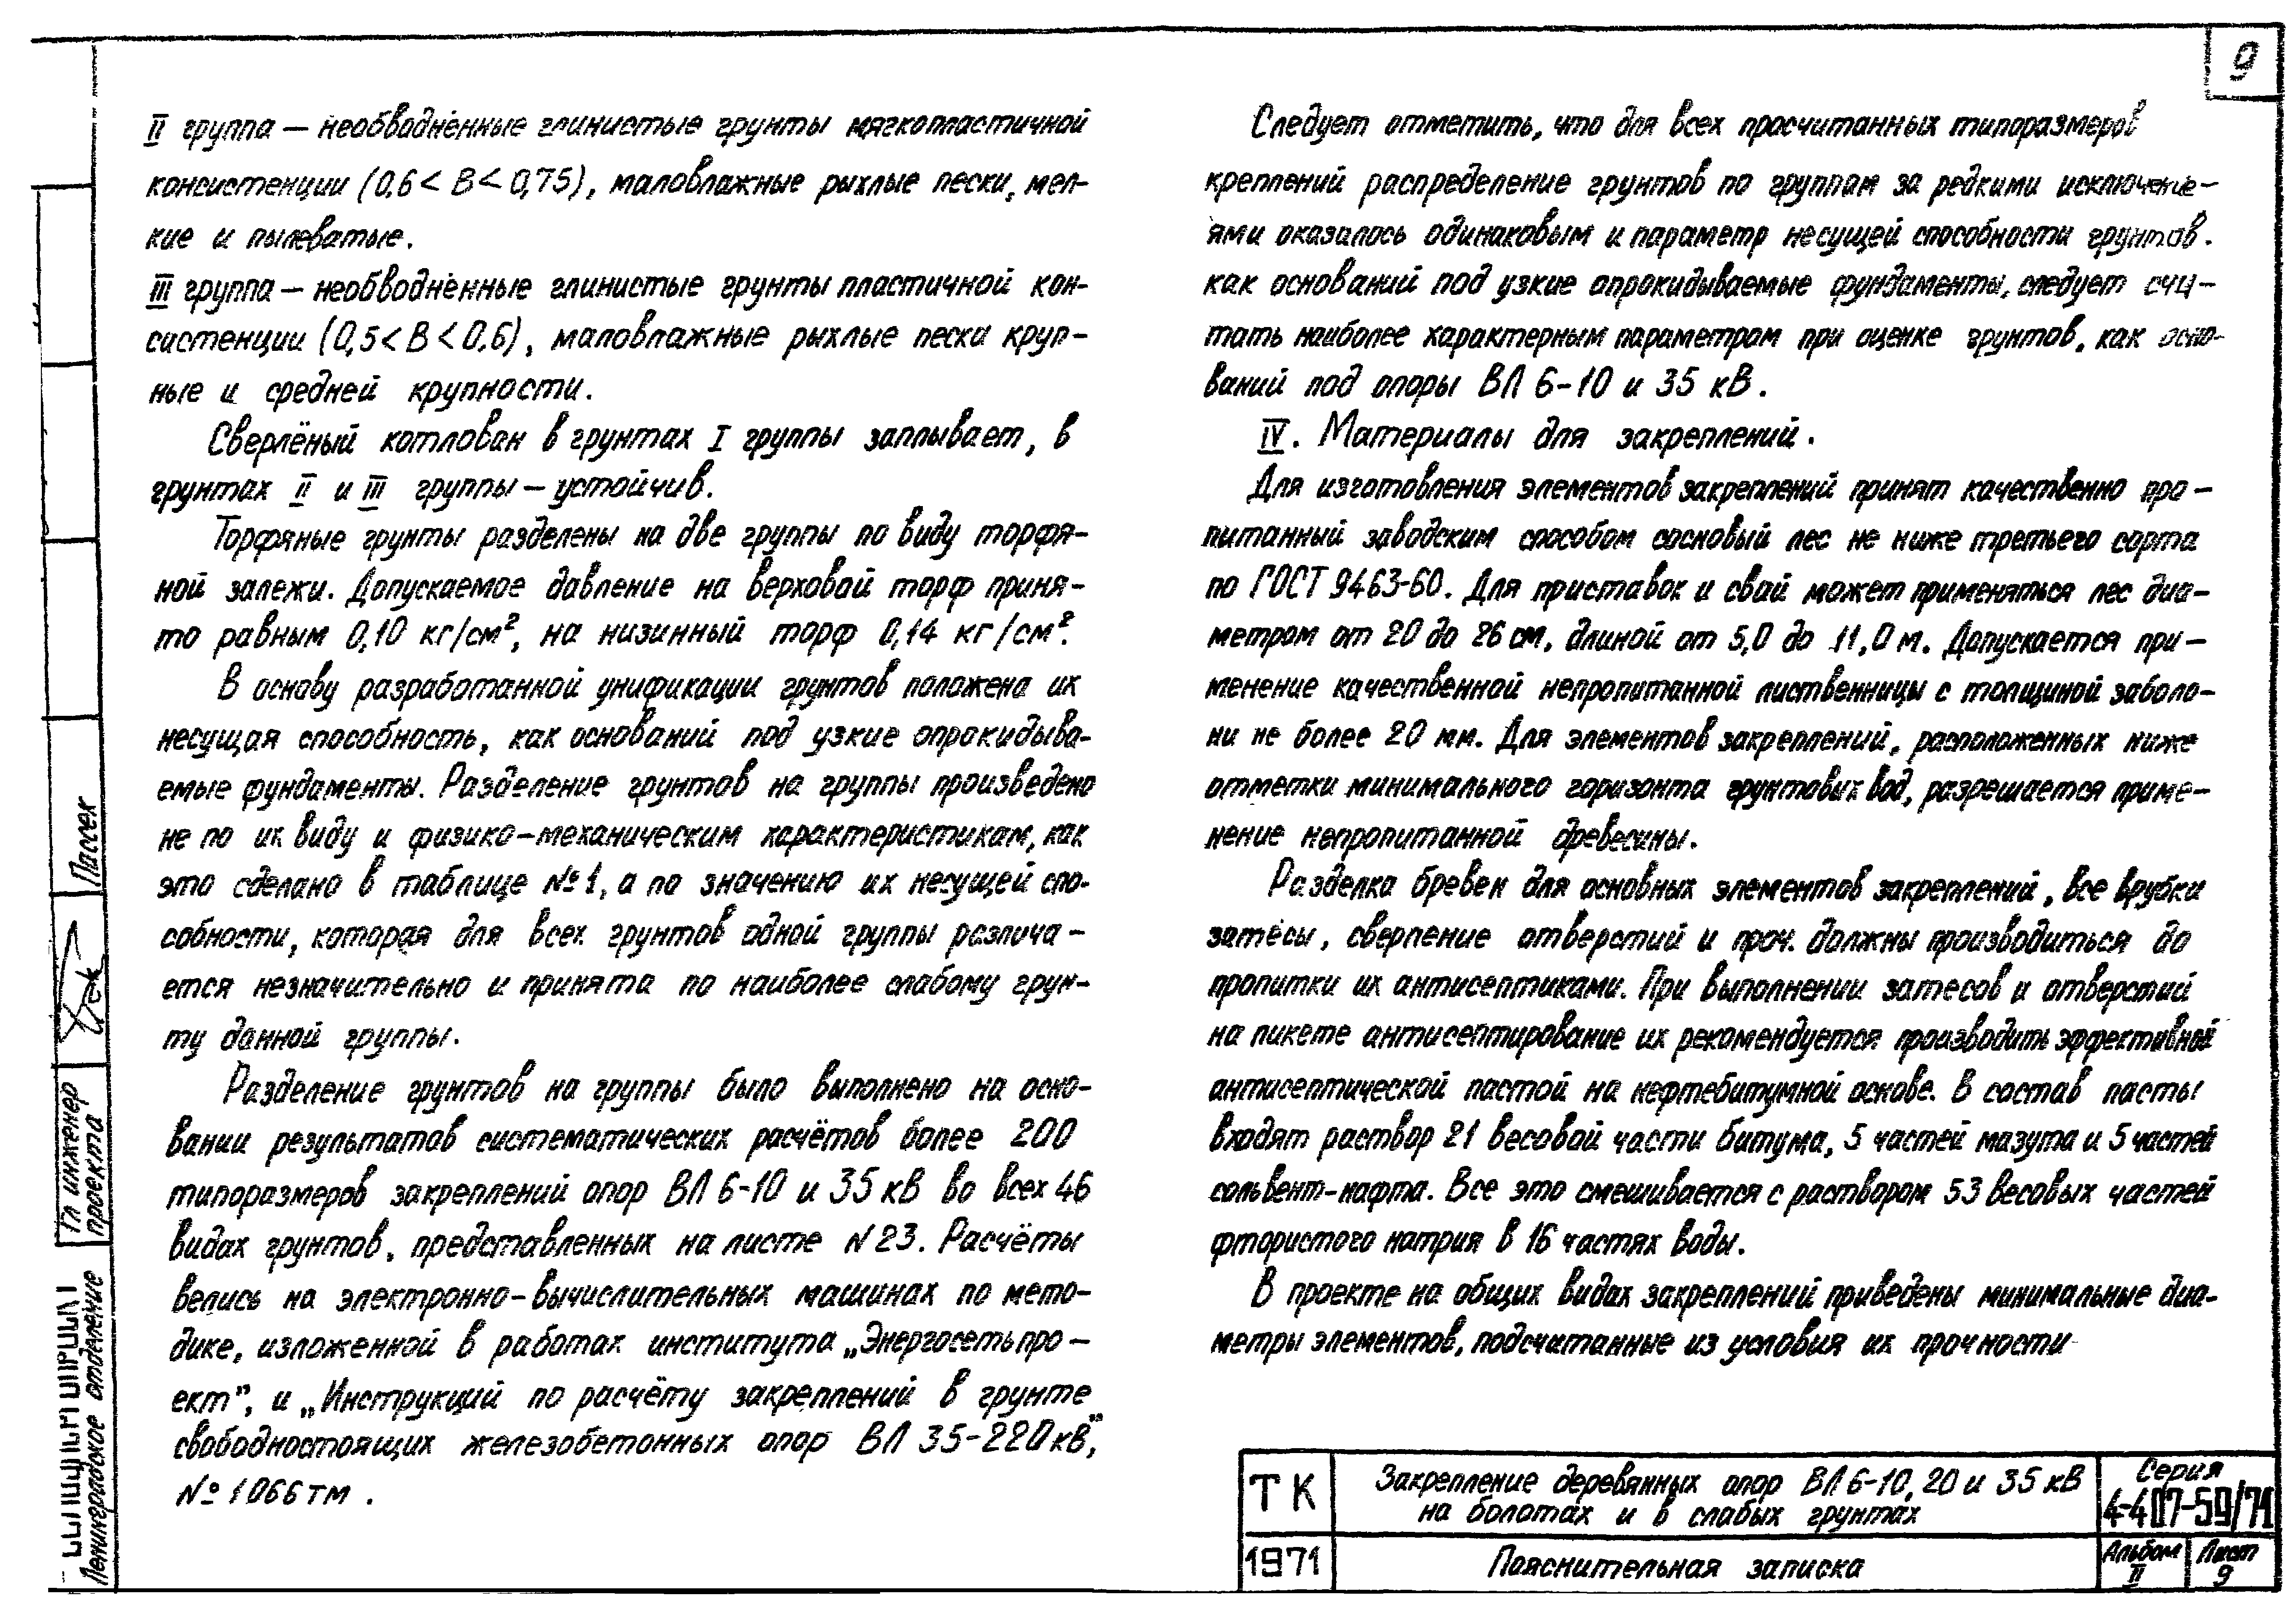 9
II группа — необводнённые глинистые грунты мягкопластичной
консистенции (0,6 < В < 0,75), маловлажные рыхлые пески, мел-
кие и пылеватые.
III группа — необводнённые глинистые грунты пластичной кон-
систенции (0,5 < В < 0,6), маловлажные рыхлые пески круп-
ные и средней крупности.
Сверлёный котлован в грунтах I группы заплывает, в
грунтах II и III группы — устойчив.
Торфяные грунты разделены на две группы по виду торфя-
ной залежи. Допускаемое давление на верховой торф приня-
то равным 0,10 кг/см², на низинный торф 0,14 кг/см².
В основу разработанной унификации грунтов положена их
несущая способность, как оснований под узкие опрокидыва-
емые фундаменты. Разделение грунтов на группы произведено
не по их виду и физико-механическим характеристикам, как
это сделано в таблице №1, а по значению их несущей спо-
собности, которая для всех грунтов одной группы различа-
ется незначительно и принята по наиболее слабому грун-
ту данной группы.
Разделение грунтов на группы было выполнено на осно-
вании результатов систематических расчётов более 200
типоразмеров закреплений опор ВЛ 6-10 и 35 кВ во всех 46
видах грунтов, представленных на листе N 23. Расчёты
велись на электронно-вычислительных машинах по мето-
дике, изложенной в работах института „Энергосетьпро-
ект", и „Инструкций по расчёту закреплений в грунте
свободностоящих железобетонных опор ВЛ 35-220 кВ",
№ 1066 тм.
Следует отметить, что для всех просчитанных типоразмеров
креплений распределение грунтов по группам за редкими исключени-
ями оказалось одинаковым и параметр несущей способности грунтов.
как оснований под узкие опрокидываемые фундаменты, следует счи-
тать наиболее характерным параметром при оценке грунтов, как осно-
ваний под опоры ВЛ 6-10 и 35 кВ.
IV. Материалы для закреплений.
Для изготовления элементов закреплений принят качественно про-
питанный заводским способом сосновый лес не ниже третьего сорта
по ГОСТ 9463-60. Для приставок и свай может применяться лес диа-
метром от 20 до 26 см, длиной от 5,0 до 11,0 м. Допускается при-
менение качественной непропитанной лиственницы с толщиной заболо-
ни не более 20 мм. Для элементов закреплений, расположенных ниже
отметки минимального горизонта грунтовых вод, разрешается приме-
нение непропитанной древесины.
Разделка бревен для основных элементов закреплений, все врубки
затёсы, сверление отверстий и проч. должны производиться до
пропитки их антисептиками. При выполнении затесов и отверстий
на пикете антисептирование их рекомендуется производить эффективной
антисептической пастой на нефтебитумной основе. В состав пасты
входят раствор 21 весовой части битума, 5 частей мазута и 5 частей
сольвент-нафта. Все это смешивается с раствором 53 весовых частей
фтористого натрия в 16 частях воды.
В проекте на общих видах закреплений приведены минимальные диа-
метры элементов, подсчитанные из условия их прочности
Ленинградское отделение
Гл инженер
проекта
Пассек
ТК
1971
Закрепление деревянных опор ВЛ 6-10, 20 и 35 кВ
на болотах и в слабых грунтах
Пояснительная записка
Серия
4-407-59/71
Альбом
II
Лист
9